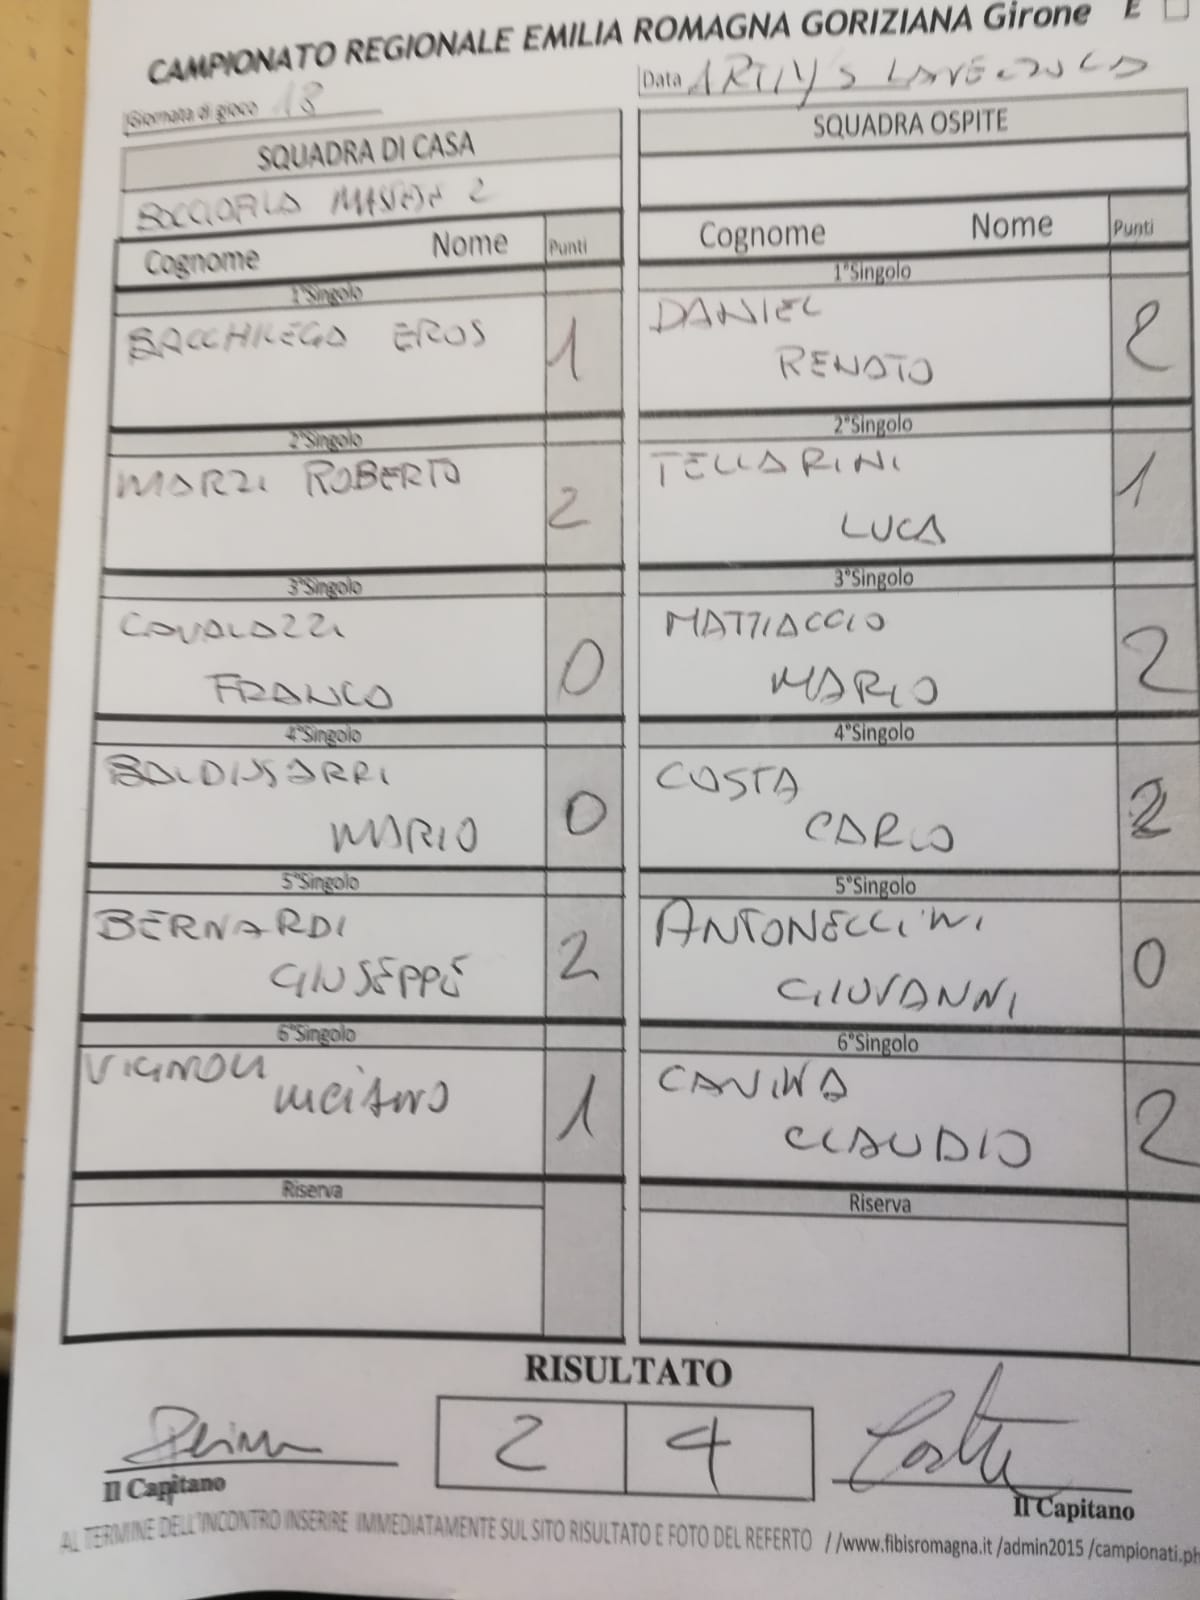 CAMPIONATO REGIONALE EMILIA ROMAGNA GORIZIANA Girone E
Giornata di gioco 18
Data
SQUADRA DI CASA
SQUADRA OSPITE
2
Cognome Nome Punti
Cognome Nome Punti
1°Singolo
1°Singolo
EROS 1
DANIEL
RENATO 2
2°Singolo
2°Singolo
MARZI ROBERTO 2
TELLARINI
LUCA 1
3°Singolo
3°Singolo
FRANCO 0
MATTIACCIO
MARIO 2
4°Singolo
4°Singolo
BALDISSARRI
MARIO 0
COSTA
CARLO 2
5°Singolo
5°Singolo
BERNARDI
GIUSEPPE 2
ANTONELLINI
GIOVANNI 0
6°Singolo
6°Singolo
VIGNOLI
1
CANINA
CLAUDIO 2
Riserva
Riserva
RISULTATO
2 4
Il Capitano
Il Capitano
AL TERMINE DELL'INCONTRO INSERIRE IMMEDIATAMENTE SUL SITO RISULTATO E FOTO DEL REFERTO //www.fibisromagna.it /admin2015 /campionati.ph